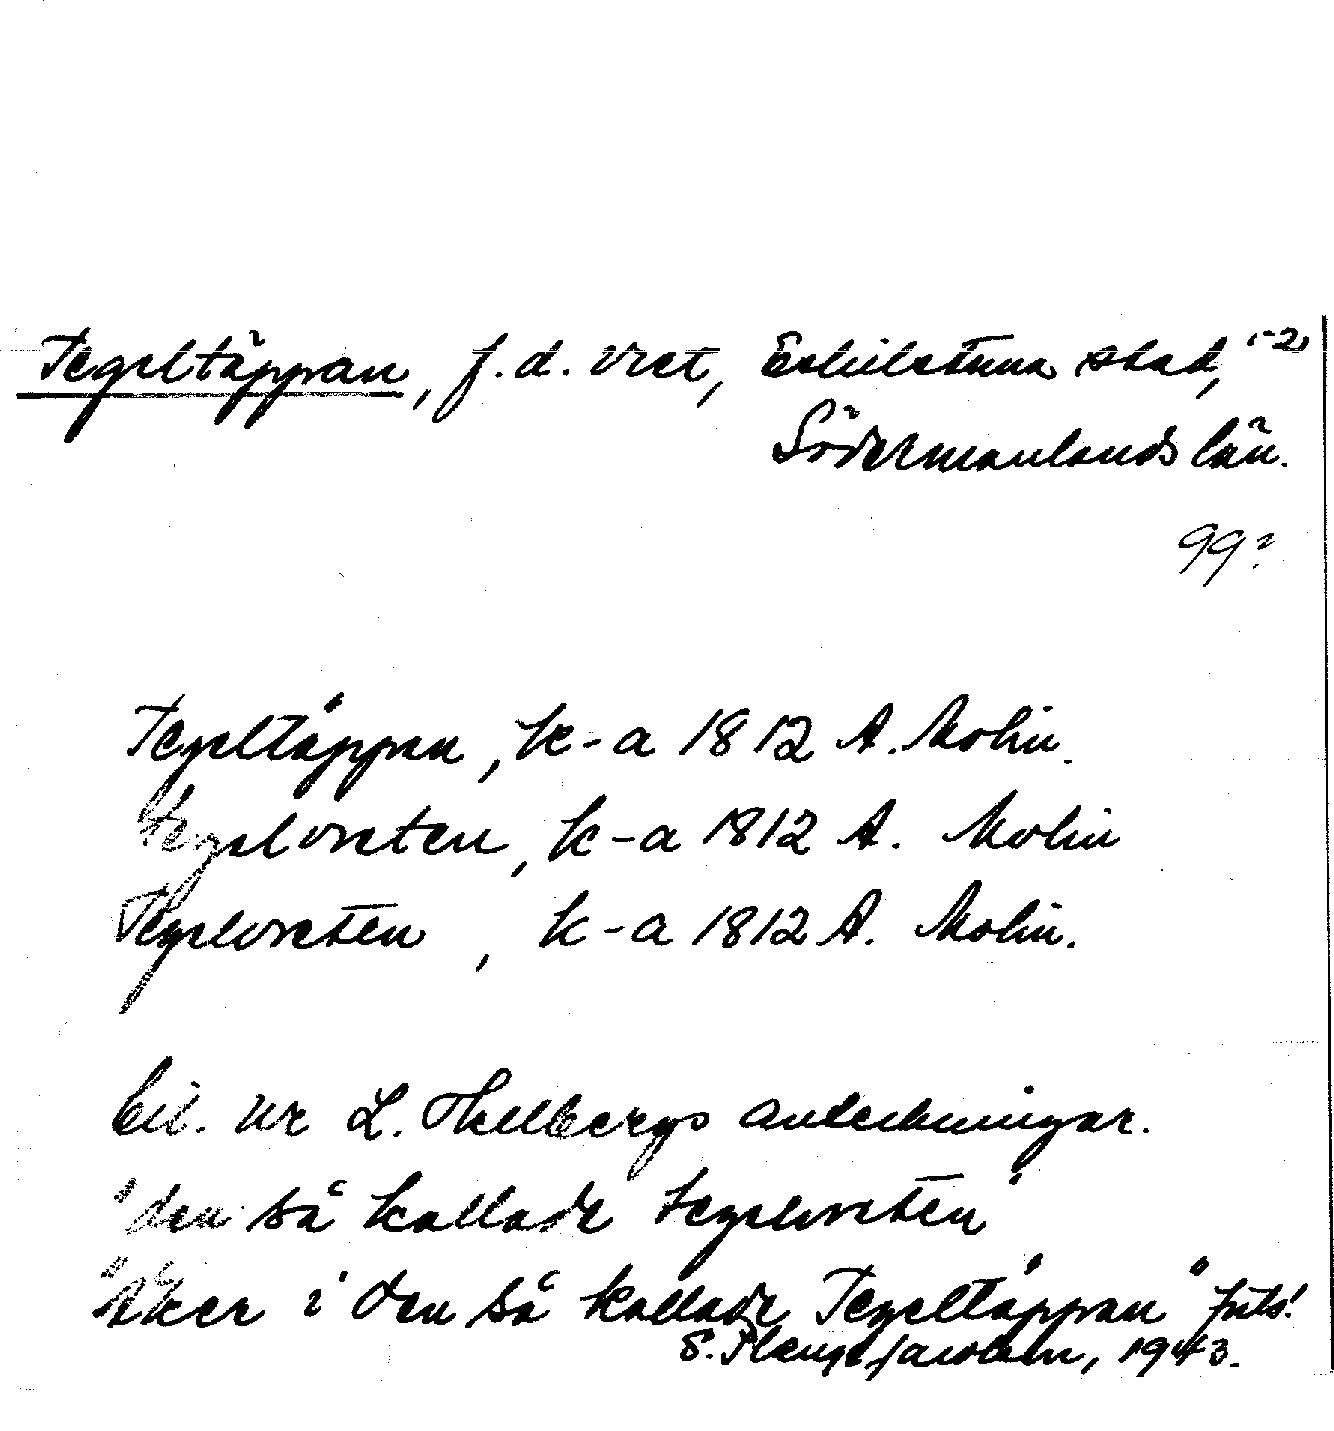 Tegeltäppan, f.d. vret, Eskilstuna stad,
Södermanlands län.
99?
Tegeltäppan, k-a 1812 A. Molin.
tegelvreten, k-a 1812 A. Molin
Tegelvreten, k-a 1812 A. Molin.
bil. ur L. Hellbergs anteckningar.
"den så kallade tegelvreten"
"åker i den så kallade Tegeltäppan"
S. Plenge Jacobson, 1943.